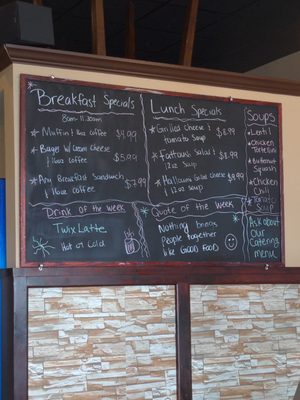 Breakfast Specials
8am-11:30am
Muffin & 16oz coffee $4.99
Bagel w/ Cream Cheese
& 16oz coffee $5.99
Any Breakfast Sandwich $7.99
& 16oz coffee
Drink of the week
Twix Latte
Hot or Cold
Lunch Specials
Grilled Cheese & $8.99
tomato Soup
Fattoush Salad & $8.99
12oz Soup
Halloumi Grilled Cheese $9.99
& 12oz Soup
Quote of the Week
Nothing brings
People together
like GOOD FOOD
Soups
Lentil
Chicken
Tortellini
Butternut
Squash
Chicken
Chili
Tomato
Soup
Ask about
our
Catering
menu